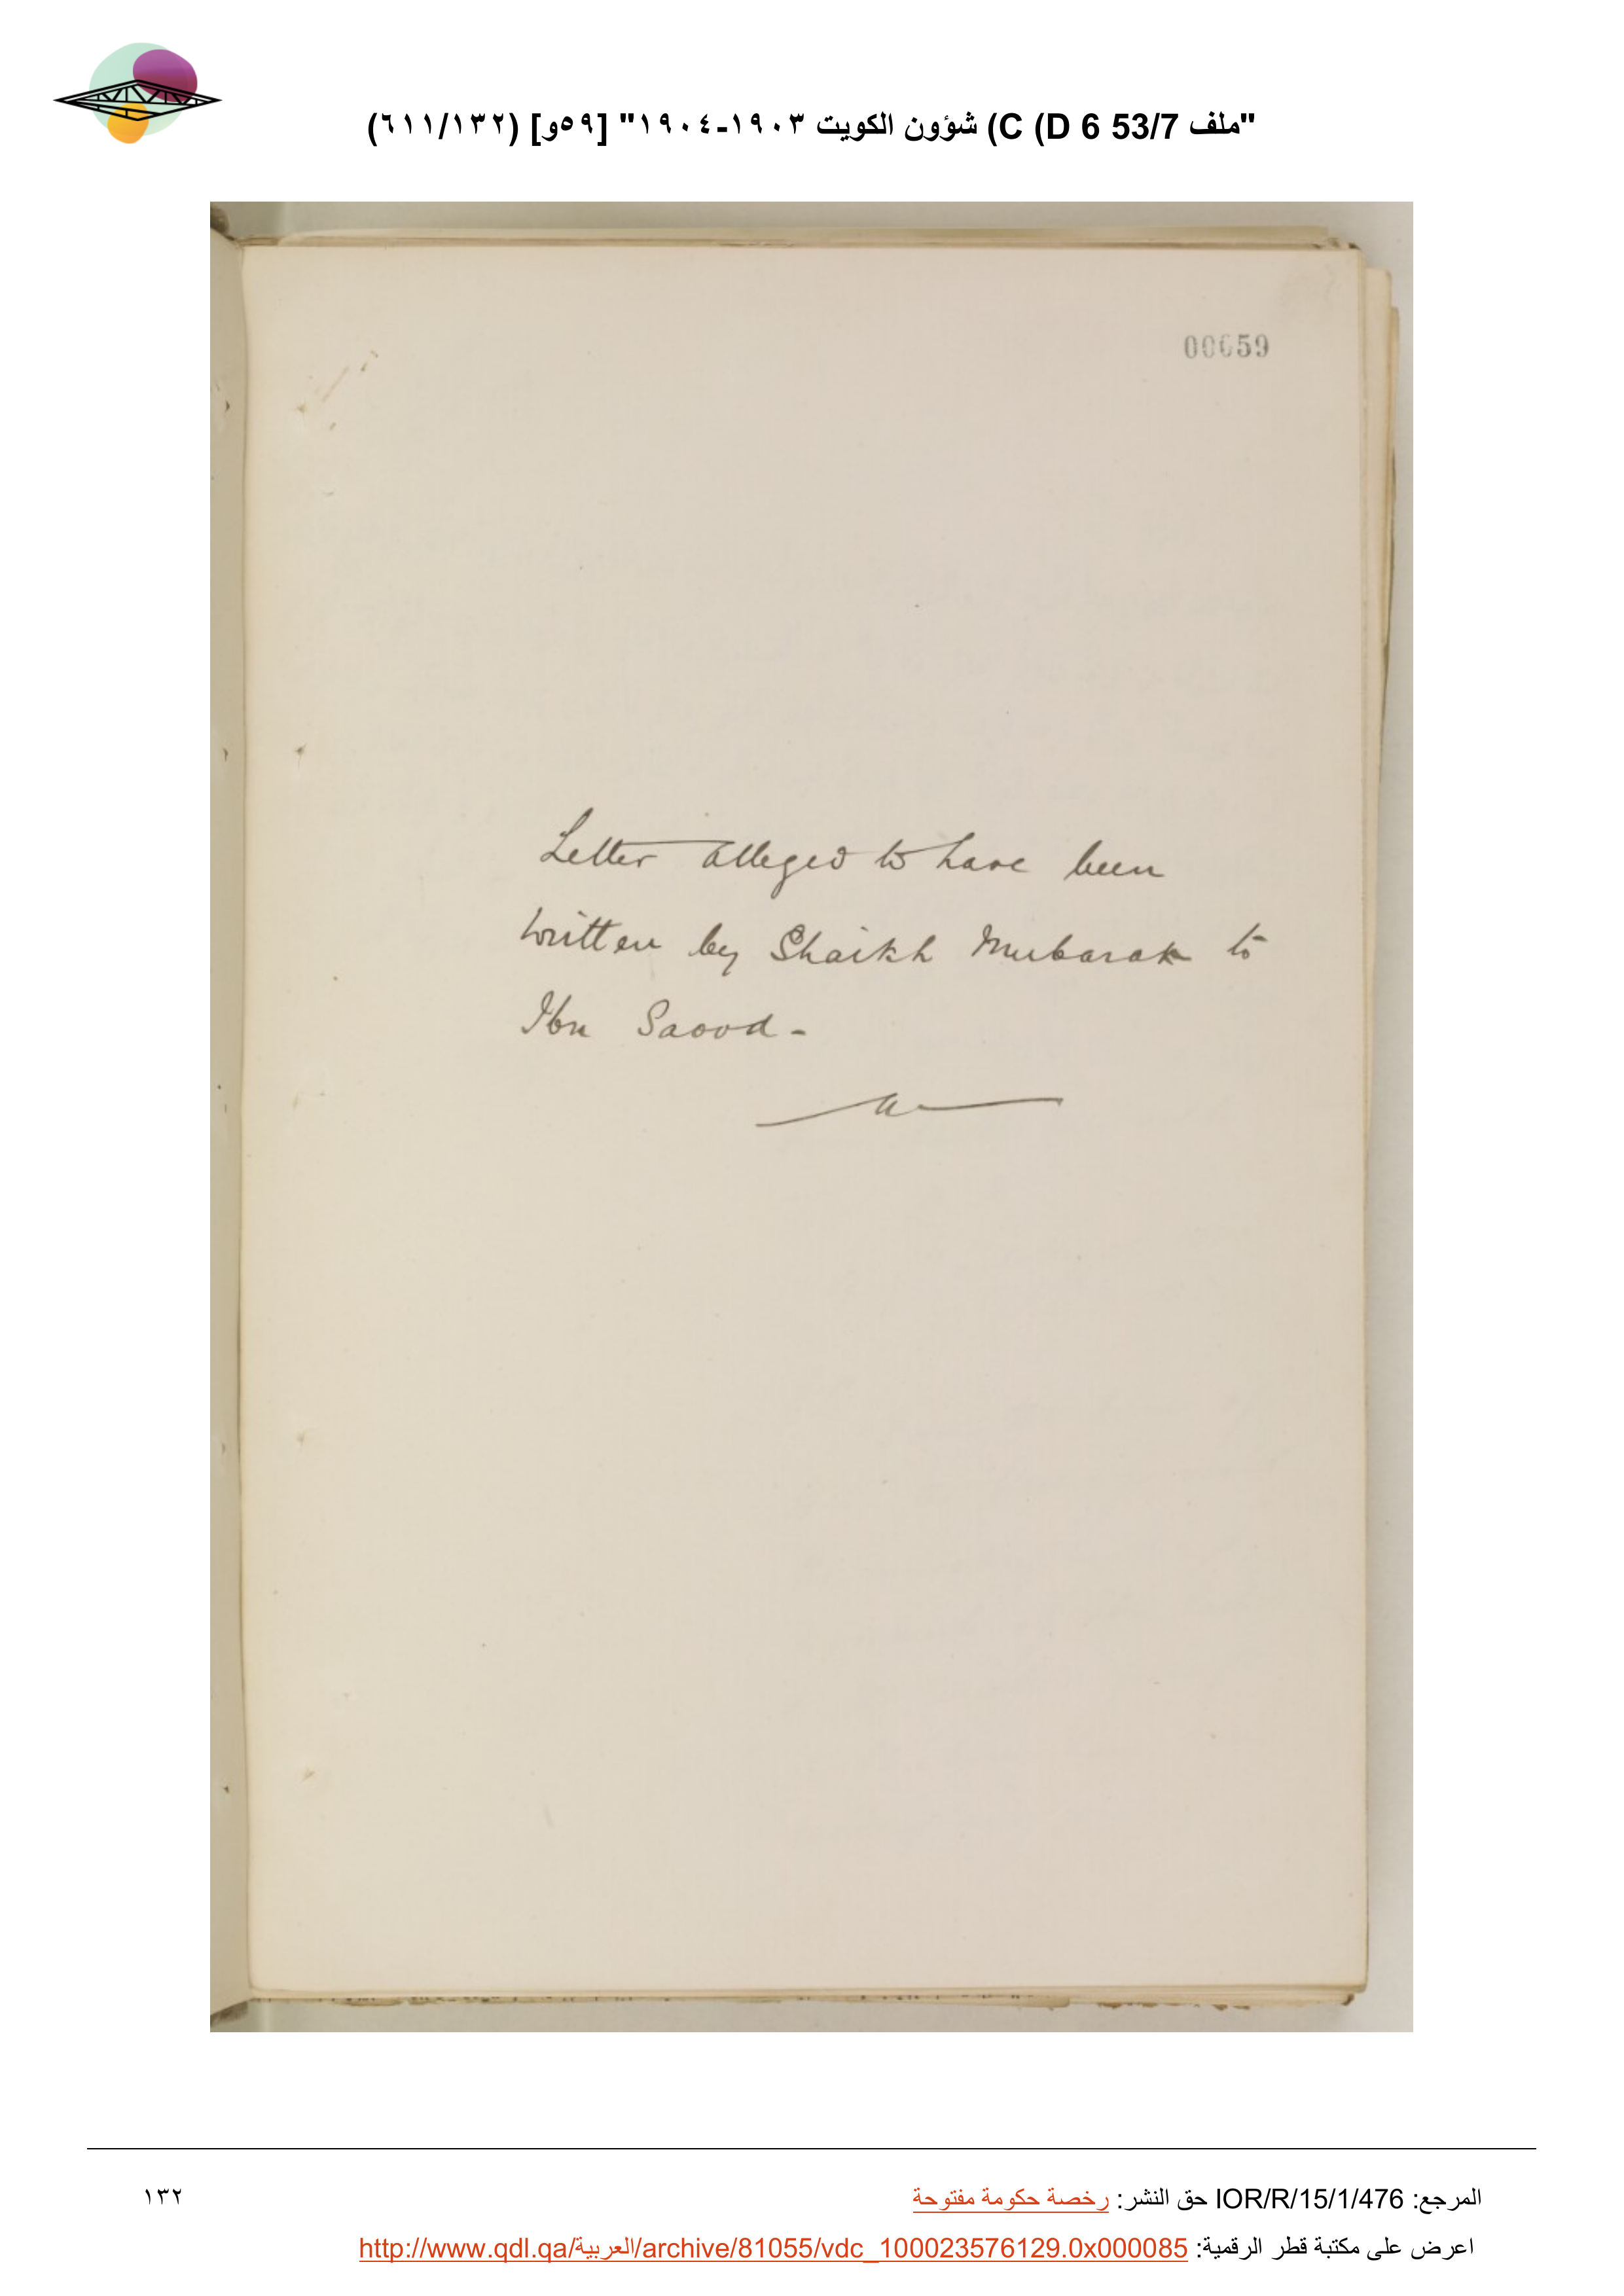 "ملف 53/7 D 6) C) شؤون الكويت ١٩٠٣-١٩٠٤" [٥٩و] (٦١١/١٣٢)
00059
Letter alleged to have been
written by Shaikh Mubarak to
Ibn Saood -
المرجع: IOR/R/15/1/476 حق النشر: رخصة حكومة مفتوحة
١٣٢
اعرض على مكتبة قطر الرقمية: http://www.qdl.qa/العربية/archive/81055/vdc_100023576129.0x000085